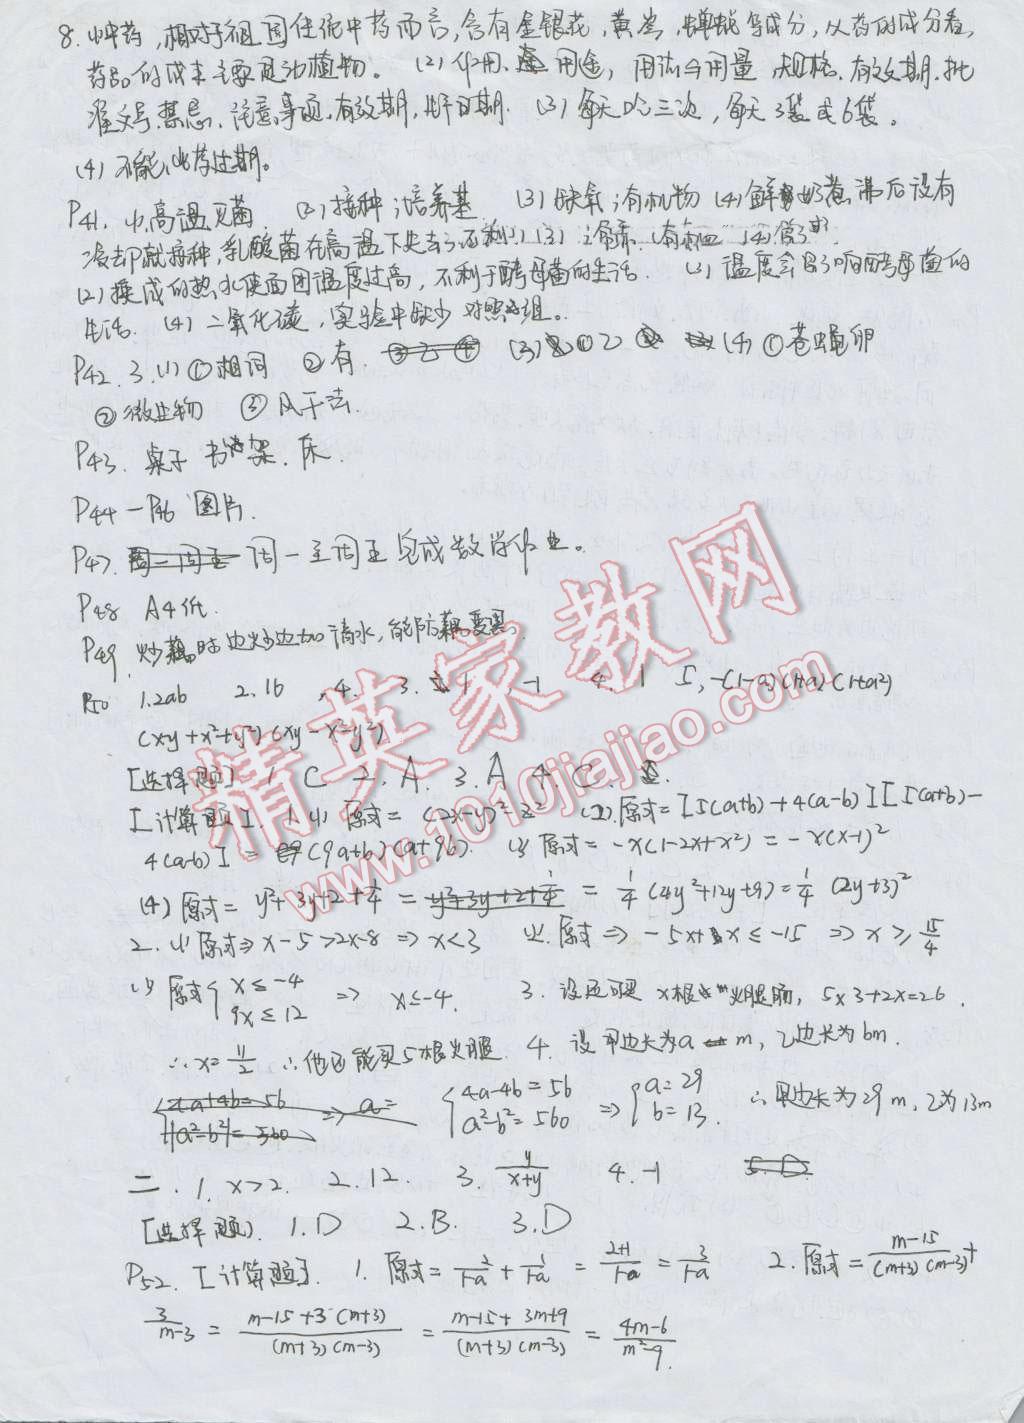 8. 中药，相对于祖国传统中药而言，含有金银花，黄岑，蝉蜕等成分，从药的成分看，
药品的成来主要是动植物。 (2) 作用、用途，用法与用量 规格、有效期、批
准文号、禁忌、注意事项、有效期，生产日期. (3) 每天吃三次，每天3袋或6袋。
(4) 不能，此药过期。
P41. (1) 高温灭菌 (2) 接种；培养基 (3) 缺氧；有机物 (4) 鲜奶煮沸后没有
冷却就接种，乳酸菌在高温下失去了
(2) 换成的热水使面团温度过高，不利于酵母菌的生活. (3) 温度会影响酵母菌的
生活. (4) 二氧化碳，实验中缺少对照组。
P42. 3. (1) ①相同 ②有. (3) ①乙 (4) ①苍蝇卵
②微生物 ③风干法.
P43. 桌子 书架. 床.
P44-P46 图片.
P47. 周一至周五完成数学作业。
P48 A4纸.
P49. 炒藕时边炒边加清水，能防藕变黑.
P50 1.2ab 2.16 , 4. 3. 1 , -1 4. 1 5, -(1-a)(1+a)(1+a²)
(xy+x²+y²)(xy-x²-y²)
[选择题] 1. C 2. A. 3. A 4. C.
[计算题]. 1.(1) 原式=(2x-y)²-z² (2).原式=[5(a+b)+4(a-b)][5(a+b)-
4(a-b)]=(9a+b)(a+9b). (3) 原式=-x(1-2x+x²)=-x(x-1)²
(4) 原式=y²+3y+2+1/4=1/4(4y²+12y+9)=1/4(2y+3)²
2. (1) 原式⇒x-5>2x-8⇒x<3 (2). 原式⇒-5x+x≤-15⇒x≥15/4
(3) 原式{x≤-4 9x≤12 ⇒ x≤-4. 3. 设还可买x根火腿肠，5×3+2x=26.
∴x=11/2 ∴他还能买5根火腿. 4. 设甲边长为a m，乙边长为bm.
{4a-4b=56 a²-b²=560 ⇒{a=29 b=13. ∴甲边长为29m，乙为13m
二. 1. x>2. 2.12. 3. y/(x+y) 4.-1
[选择题]. 1.D 2.B. 3.D
P52. [计算题]. 1. 原式=2/(1-a)+1/(1-a)=(2+1)/(1-a)=3/(1-a) 2. 原式=(m-15)/((m+3)(m-3))+
3/(m-3)=(m-15+3(m+3))/((m+3)(m-3))=(m-15+3m+9)/((m+3)(m-3))=(4m-6)/(m²-9).
精英家教网
www.1010jiajiao.com